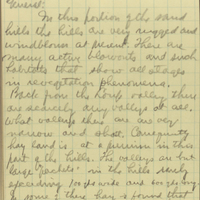 In this portion of the sand
hills the hills are very rugged and
windblown at present. There are
many active blowouts and such
habitats that show all stages
in revegetation phenomena.
Back from the Loup valley there
are scarcely any valleys at all.
What valleys there are are very
narrow and short. Consequently
hay land is at a premium in this
part of the hills. The valleys are but
large "pockets" in the hills rarely
exceeding 200 yds wide and 600 yds long.
In some, there hay is found that